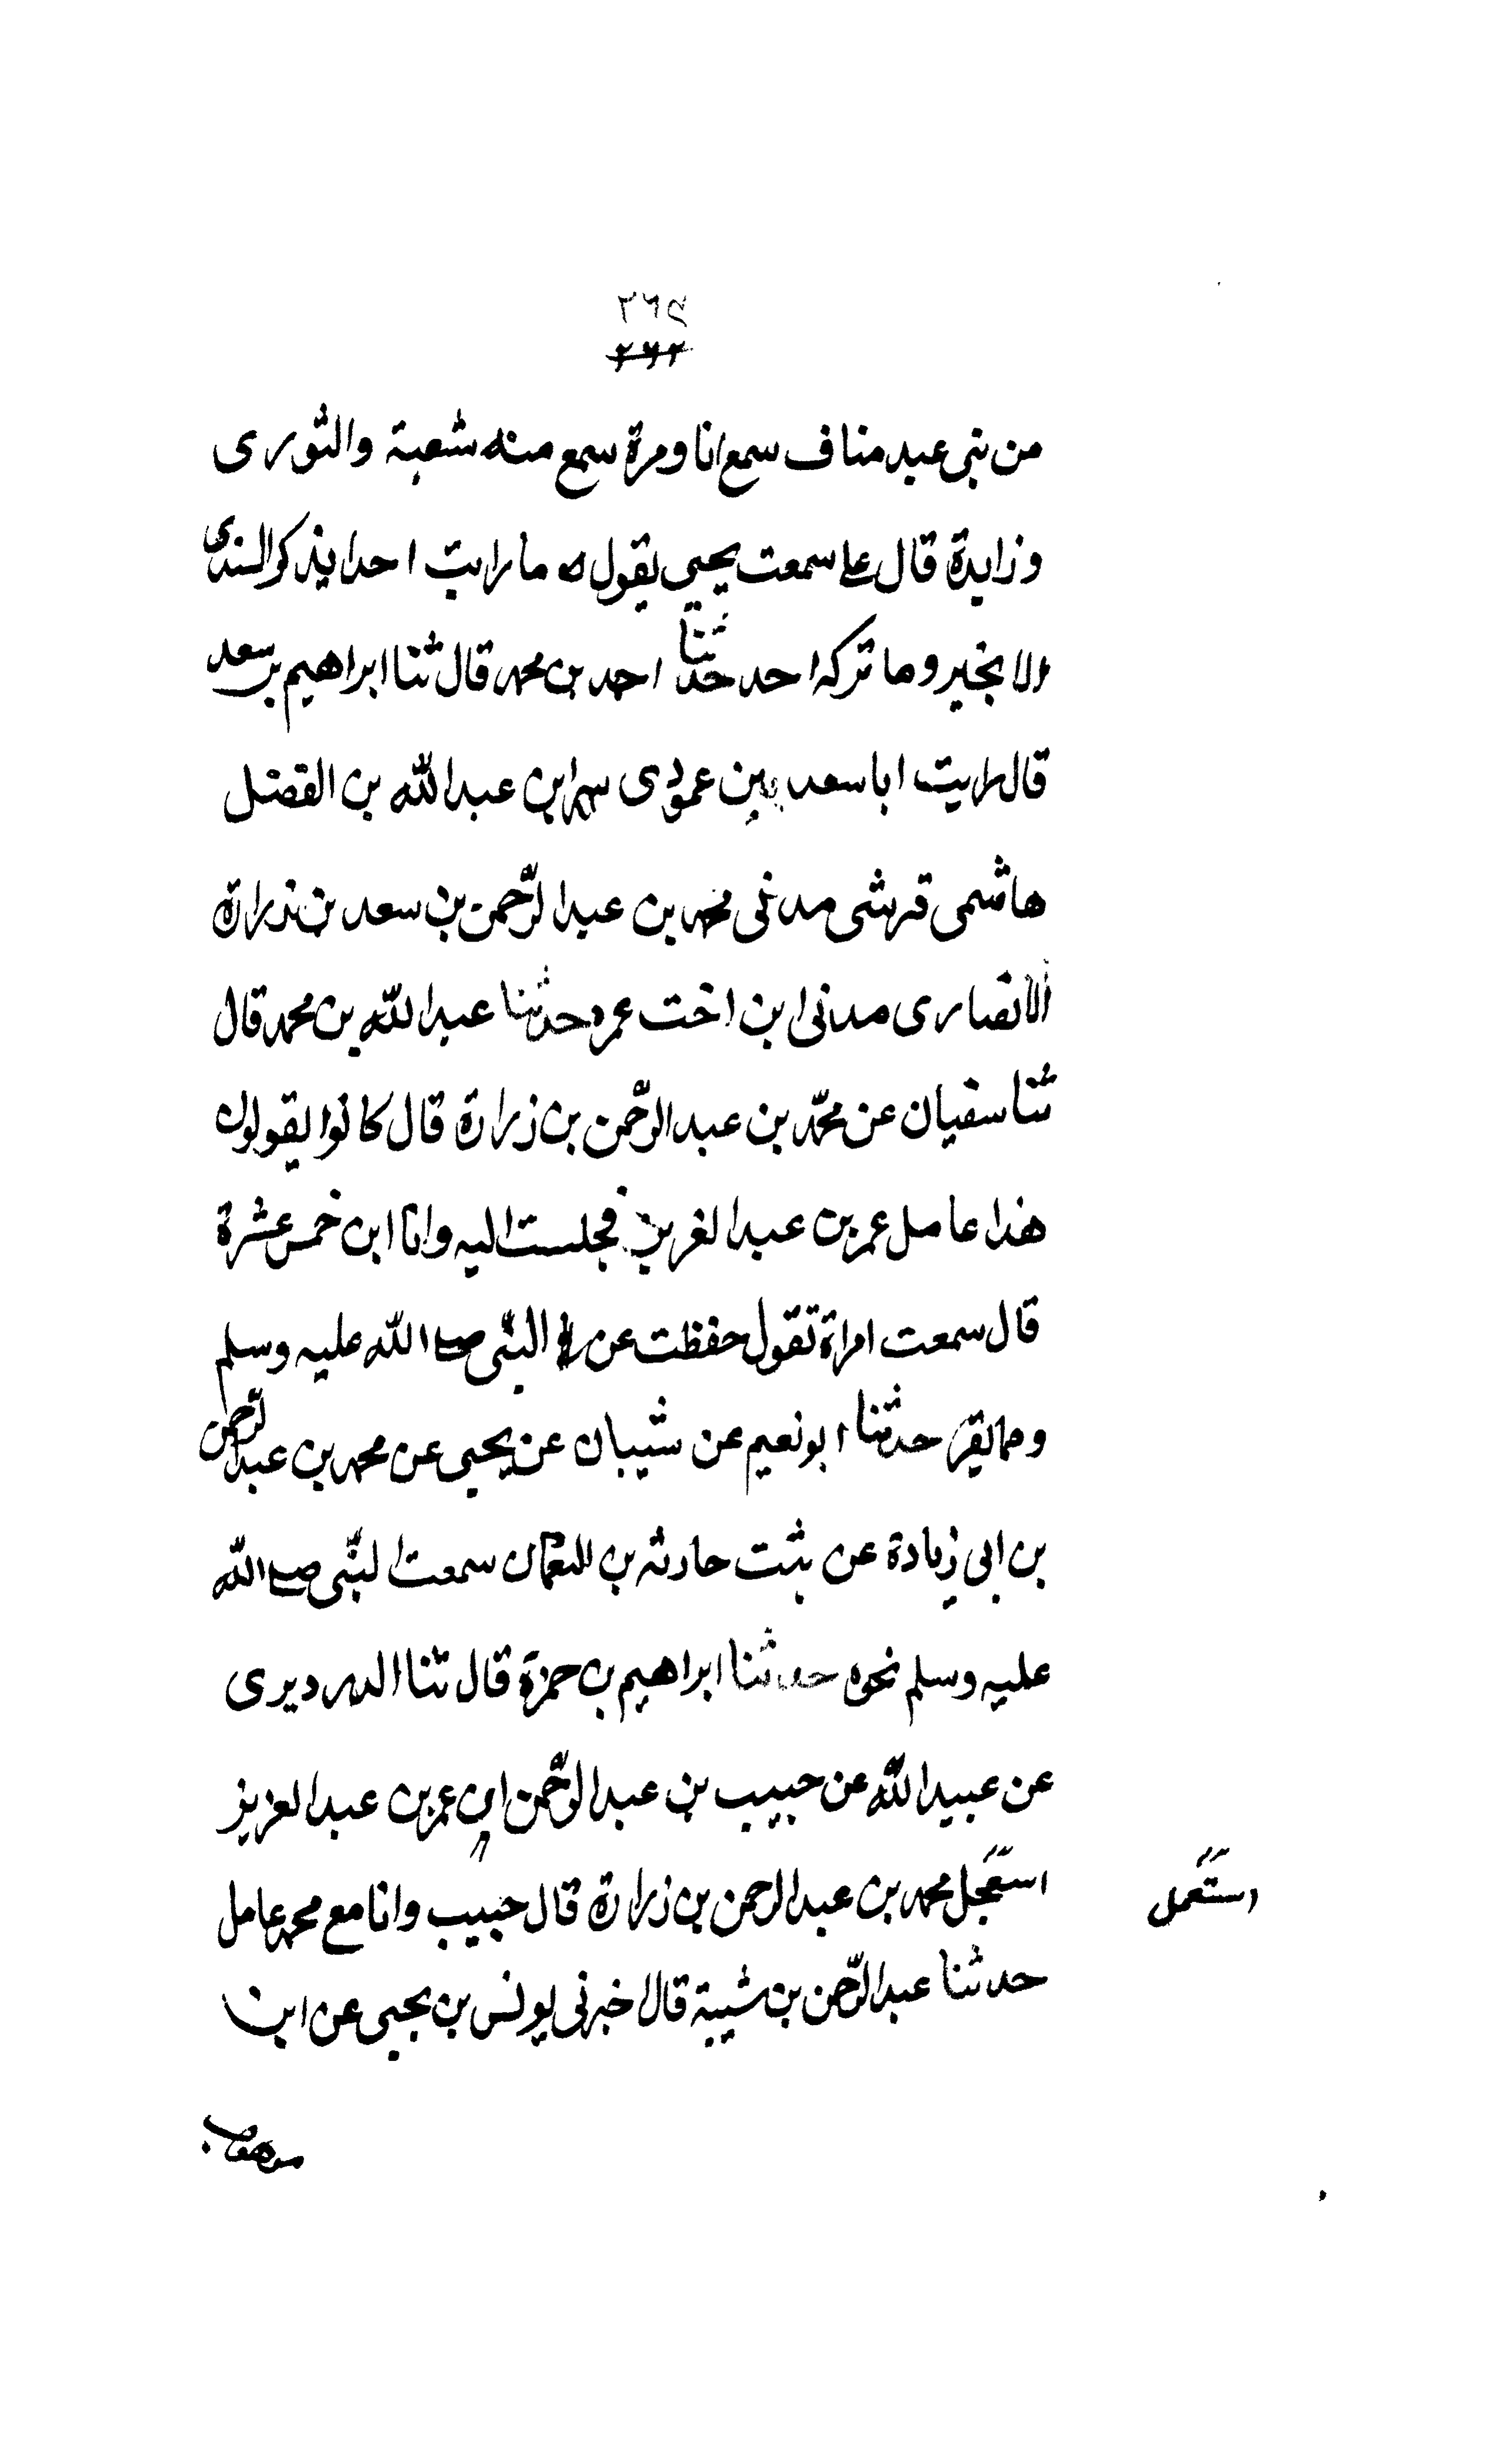 ٢٦٩
٢٦٢
من بنى عبد مناف سمع انا ومرة سمع منه شعبة والثورى
وزايدة قال على سمعت يحيى يقول ما رايت احدا يذكر السدى
الا بخير وما تركه احد حدثنا احمد بن محمد قال ثنا ابراهيم بن سعد
قال رايت ابا سعد بين عمودى سرير ابن عبد الله بن الفضل
هاشمى قرشى مدنى محمد بن عبد الرحمن بن سعد بن زرارة
الانصارى مدنى ابن اخت عمرة حدثنا عبد الله بن محمد قال
ثنا سفيان عن محمد بن عبد الرحمن بن زرارة قال كانوا يقولون
هذا عامل عمر بن عبد العزيز فجلست اليه وانا ابن خمس عشرة
قال سمعت امراة تقول حفظت عن النبى صلى الله عليه وسلم
حدثنا ابو نعيم عن شيبان عن يحيى عن محمد بن عبد الرحمن
بن ابى زيادة عن بنت حارثه بن النعمان سمعت النبى صلى الله
عليه وسلم نحوه حدثنا ابراهيم بن حمزة قال ثنا الدرديرى
عن عبيد الله عن حبيب بن عبد الرحمن ان عمر بن عبد العزيز
استعجل محمد بن عبد الرحمن بن زرارة قال حبيب وانا مع محمد عامل
استعمل
حدثنا عبد الرحمن بن شيبة قال اخبرنى يونس بن يحيى عن ابن